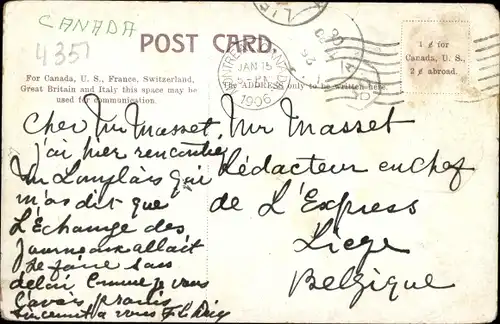 CANADA
4357
POST CARD.
1 ¢ for
Canada, U. S.,
2 ¢ abroad.
MONTREAL CANADA
JAN 15
1906
For Canada, U. S., France, Switzerland,
Great Britain and Italy this space may be
used for communication.
The ADDRESS only to be written here.
Cher Mr Masset,
j'ai hier rencontre
Mr Langlais qui
m'a dit que
L'Echange des
journeaux allait
se faire sans
délai comme je vous
l'avais promis
sincèrement a vous
Mr Masset
Rédacteur en chef
de L'Express
Liege
Belgique